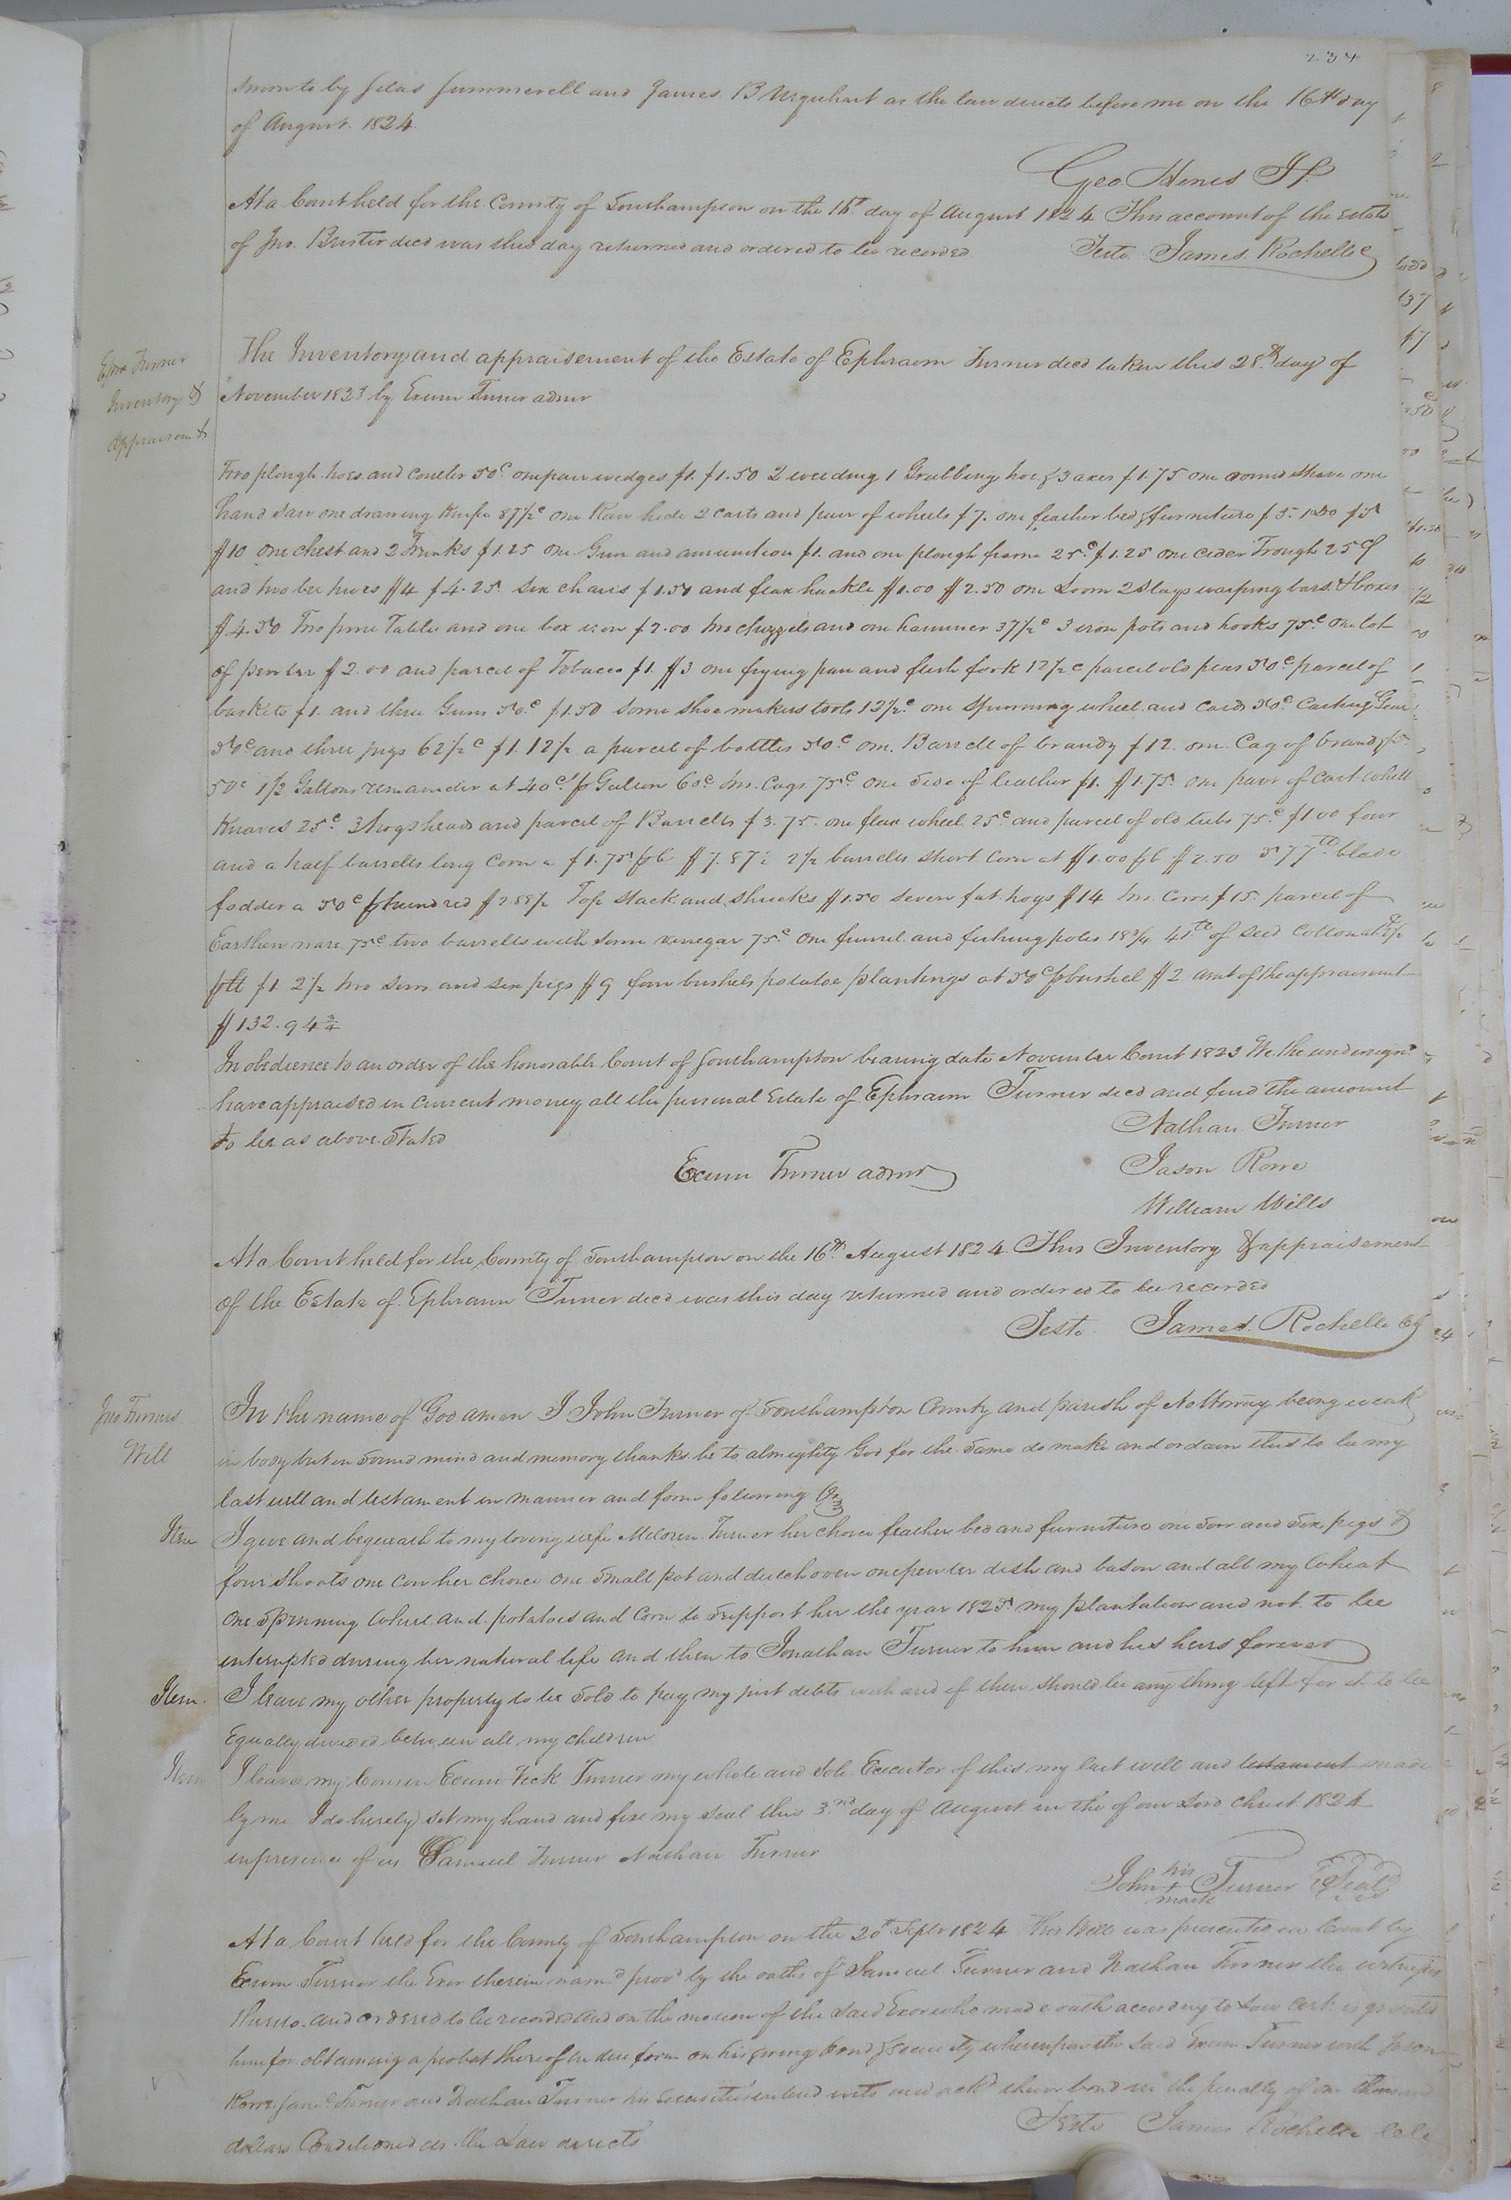 234
sworn to by Silas Summerell and James B Urquhart as the law directs before me on the 16th day
of August. 1824.
Geo. Hines J P.
At a Court held for the County of Southampton on the 16th day of August 1824 This account of the Estate
of Jno. Brister decd was this day returned and ordered to be recorded
Teste James. Rochelle
Epm Turner
Inventory &
Appraisemt
The Inventory and appraisement of the Estate of Ephraim Turner decd taken this 28th day of
November 1823 by Exum Turner admr
Two plough hoes and coulter 50c one pair wedges $1. $1.50 2 weeding 1 Grubbing hoe & 3 axes $1.75 one round shave one
hand saw one drawing knife 87½c one Raw hide 2 carts and pair of wheels $7. one feather bed & furniture $5. 1 do $5
$10 one chest and 2 Trunks $1.25 one Gun and amunition $1. and one plough frame 25c $1.25 one cider Trough 25c
and two bee hives $4 $4.25 six chairs $1.50 and flax hackle $1.00 $2.50 one Loom 2 Slays warping bars & boxes
$4.50 Two pine Tables and one box iron $2.00 two chizzels and one hammer 37½c 3 iron pots and hooks 75c one lot
of pewter $2.00 and parcel of Tobacco $1. $3 one frying pan and flesh fork 12½c parcel old peas 50c parcel of
baskets $1. and three Guns 50c $1.50 some shoe makers tools 12½c one spinning wheel and cards 50c Carting Gear
50c and three jugs 62½c $1.12½ a parcel of bottles 50c one Barrell of brandy $12. one Cag of brandy $5.
50c 1½ Gallons remainder at 40c p Gallon 60c two Cags 75c one side of leather $1. $1.75 one pair of cart wheel
Knaves 25c 3 hogsheads and parcel of Barrells $3.75. one flax wheel 25c and parcel of old tubs 75c $1.00 four
and a half barrells long corn a $1.75 p b $7.87½ 2½ barrells short corn at $1.00 p b $2.50 577 lb blade
fodder a 50c p hundred $2.88½ Top stack and shucks $1.50 seven fat hogs $14 two Cows $15 parcel of
Earthen ware 75c two barrells with some vinegar 75c one funnel and fishing poles 18¾ 41 lb of seed cotton at 2½
p lb $1. 2½ two sows and six pigs $9 four bushels potatoe plantings at 50c p bushel $2 amt of the appraisement
$132.94¾
In obedience to an order of the honorable Court of Southampton bearing date November Court 1823 We the undersignd
have appraised in current money all the personal Estate of Ephraim Turner decd and find the amount
to be as above Stated
Nathan Turner
Exum Turner admr
Jason Rowe
William Wills
At a Court held for the County of Southampton on the 16th August 1824 This Inventory & appraisement
of the Estate of Ephraim Turner decd was this day returned and ordered to be recorded
Teste James. Rochelle
Jno Turners
Will
In the name of God amen I John Turner of Southampton County and parish of Nottoway being weak
in body but in sound mind and memory thanks be to almighty God for the same do make and ordain this to be my
last will and testament in manner and form following
Item
I give and bequeath to my loving wife Turner her choice feather bed and furniture one sow and six pigs &
four shoats one cow her choice one small pot and dutch oven one pewter dish and bason and all my wheat
one spinning wheel and potatoes and corn to support her the year 1825 my plantation and not to be
interupted during her natural life and then to Jonathan Turner to him and his heirs forever
Item.
I leave my other property to be sold to pay my just debts with and if there should be any thing left for it to be
Equally divided between all my children
Item
I leave my Cousin Exum Turner my whole and sole Executor of this my last will and testament made
by me I do hereby set my hand and fixe my seal this 3.nd day of August in the of our Lord christ 1824
in presence of us Samuel Turner Nathan Turner
John his + mark Turner Seal
At a Court held for the County of Southampton on the 20th Septr 1824 This Will was presented in Court by
Exum Turner the Exor therein namd provd by the oaths of Samuel Turner and Nathan Turner the witnesses
thereto. and ordered to be recorded and on the motion of the said Exor who made oath according to Law Cert. is granted
him for obtaining a probat thereof in due form on his giving bond & security whereupon the said Exum Turner with Jason
Rowe Saml Turner and Nathan Turner his securities entered into and ackd their bond in the penalty of one thousand
dollars Conditioned as the Law directs
Teste James Rochelle